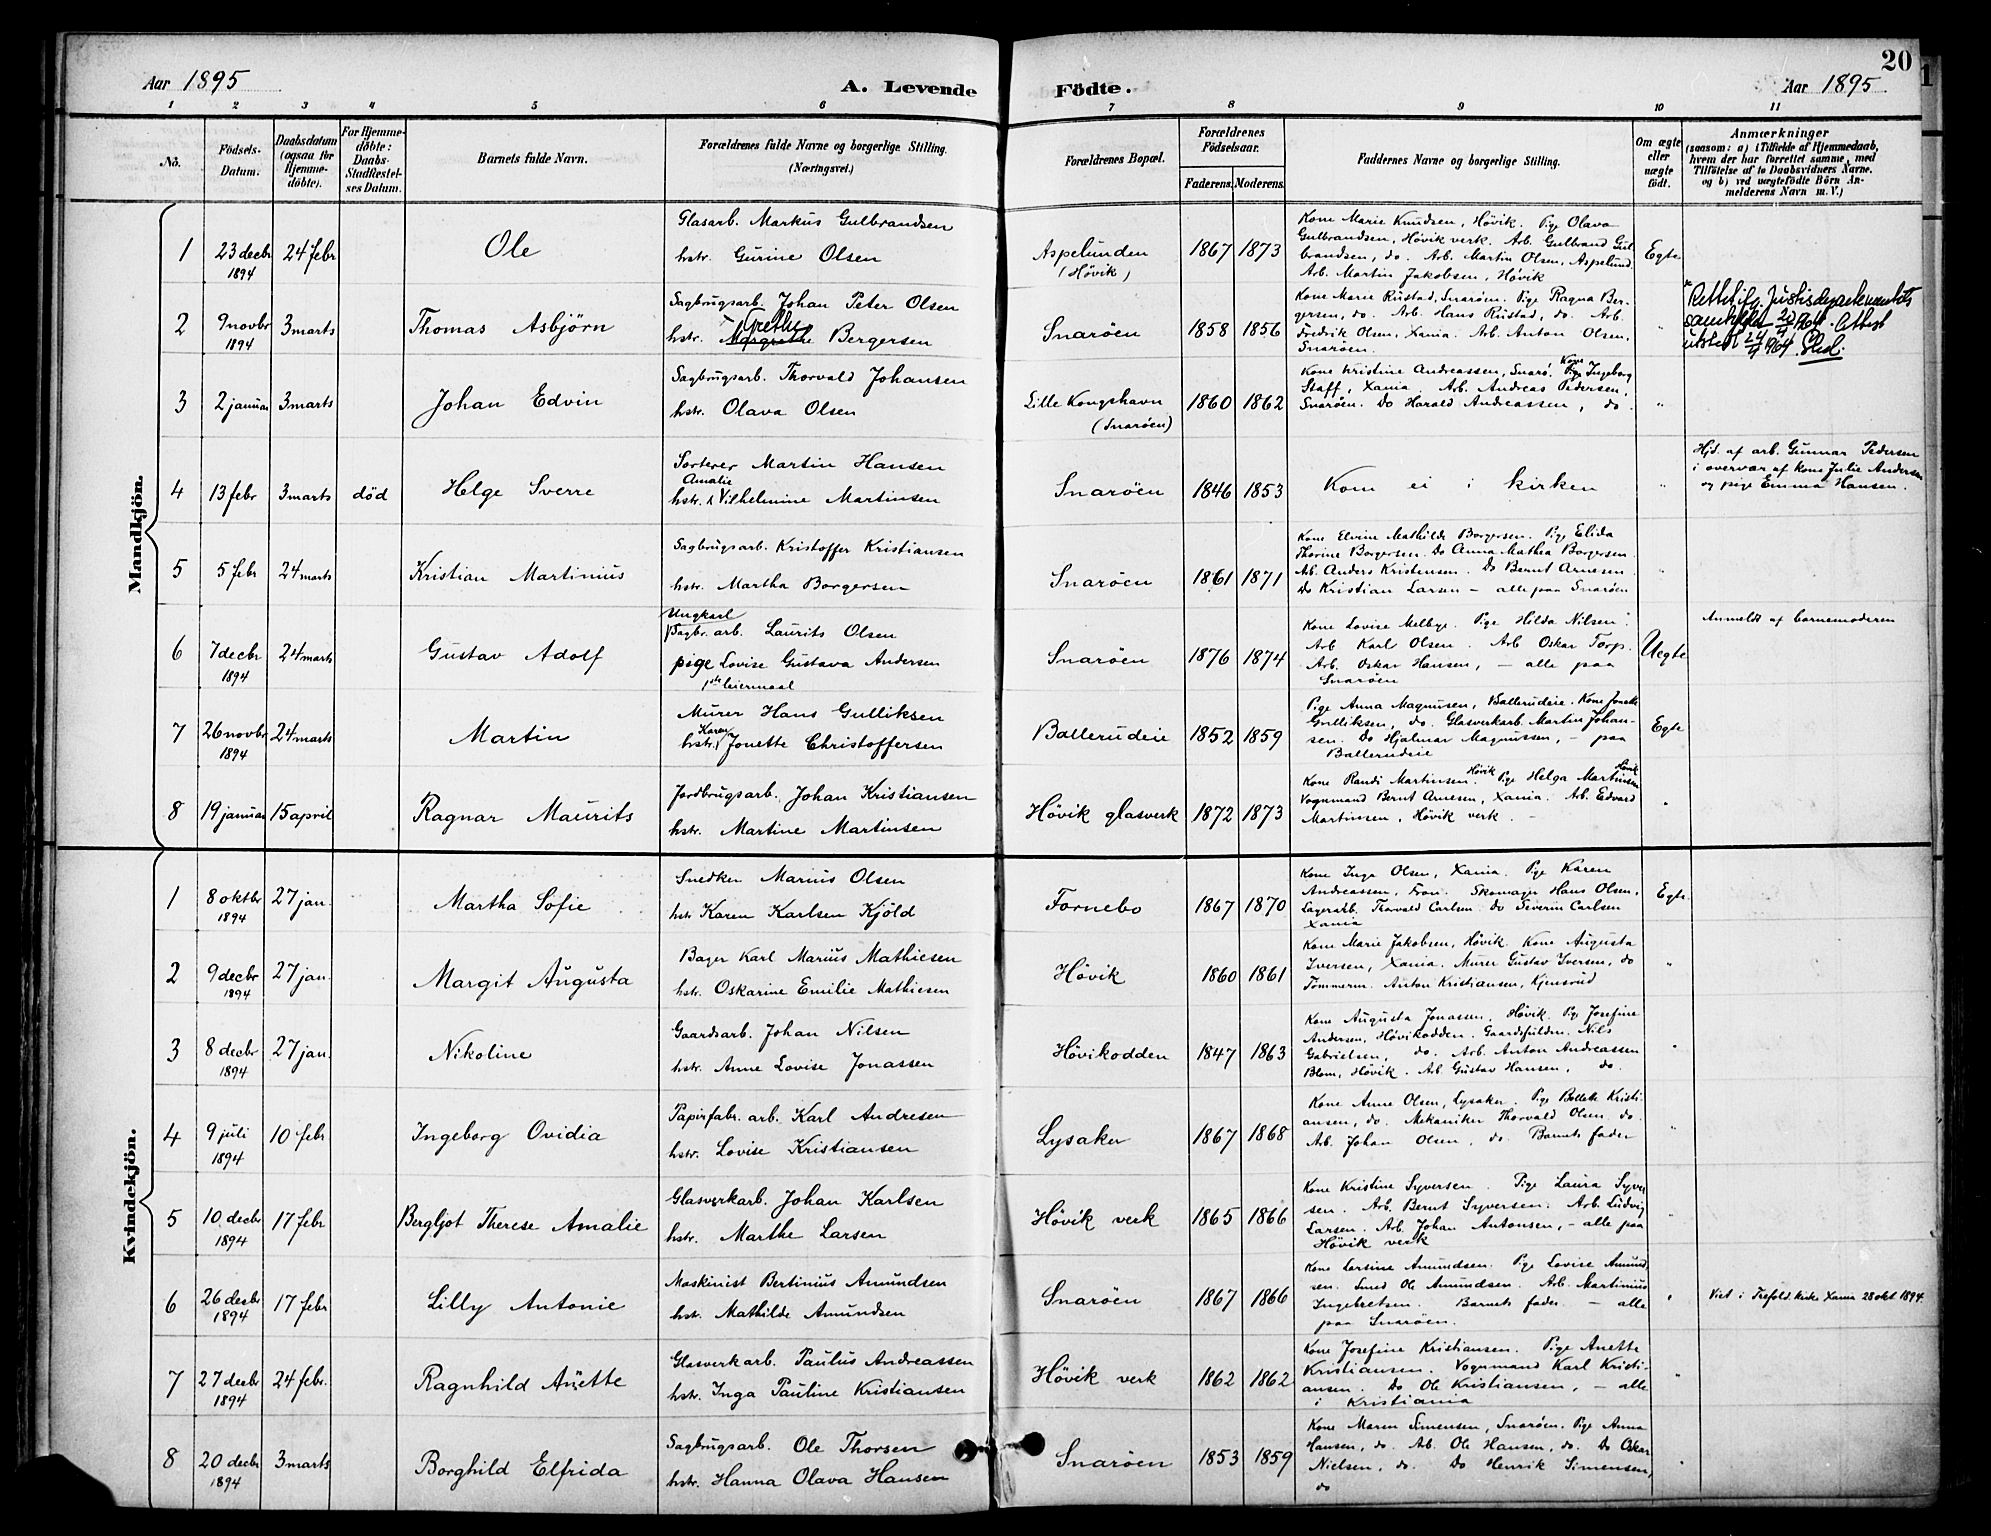 Aar 1895
A. Levende
Födte.
Aar 1895
20
1 2 3 4 5 6 7 8 9 10 11
No.
Födsels-
Datum.
Daabsdatum
(ogsaa for
Hjemme-
döbte).
For Hjemme-
döbte:
Daabs-
Stadfæstel-
ses Datum.
Barnets fulde Navn.
Forældrenes fulde Navne og borgerlige Stilling.
(Næringsvei.)
Forældrenes Bopæl.
Forældrenes
Födselsaar.
Faderens. Moderens.
Faddernes Navne og borgerlige Stilling.
Om ægte
eller
uægte
födt.
Anmærkninger
(saasom: a) i Tilfælde af Hjemmedaab,
hvem der har forrettet samme, med
Tilföielse af to Daabsvidners Navne.
og b) ved uægtefödte Börn An-
melderens Navn m. V.)
Mandkjön.
1
23 decbr
1894
24 febr
Ole
Glasarb. Markus Gulbrandsen
hstr. Gurine Olsen
Aspelunden
(Høvik)
1867 1873
Kone Marie Knudsen, Høvik. Pige Olava
Gulbrandsen, Høvik verk. Arb. Gulbrand Gul
brandsen, do. Arb. Martin Olsen, Aspelund.
Arb. Martin Jakobsen, Høvik
Egte
2
9 novbr
1894
3 marts
Thomas Asbjörn
Sagbrugsarb. Johan Peter Olsen
Grethe
hstr. Margrethe Bergersen
Snarøen
1858 1856
Kone Marie Rustad, Snarøen. Pige Ragna Ber-
gersen, do. Arb. Hans Rustad, do. Arb.
Fredrik Olsen, Xania. Arb. Anton Olsen,
Snarøen.
"
Rettet ifg. Justisdepartementets
samtykke 20/4 1964. Attest
utstedt 24/4 1964.
3
2 januar
3 marts
Johan Edvin
Sagbrugsarb. Thorvald Johansen
hstr. Olava Olsen
Lille Kongshavn
(Snarøen)
1860 1862
Kone Kristine Andreassen, Snarø. Kone Pige Ingeborg
Staff, Xania. Arb. Andreas Pedersen,
Snarøen. Do Harald Andreassen, do.
"
4
13 febr
3 marts
död
Helge Sverre
Sorterer Martin Hansen
Amalie
hstr. Vilhelmine Martinsen
Snarøen
1846 1853
Kom ei i kirken
"
Hjd. af arb. Gunnar Pedersen
i overvær af kone Julie Andersen
og pige Emma Hansen.
5
5 febr
24 marts
Kristian Martinius
Sagbrugsarb. Kristoffer Kristiansen
hstr. Martha Borgersen
Snarøen
1861 1871
Kone Elvine Mathilde Borgersen. Pige Elida
Thorine Borgersen. Do Anna Mathea Borgersen.
Arb. Anders Kristensen. Do Bernt Arnesen.
Do Kristian Larsen – alle paa Snarøen
"
6
7 decbr
1894
24 marts
Gustav Adolf
Ungkarl
Sagbr. arb. Laurits Olsen
pige Lovise Gustava Andersen
1ste leiermaal
Snarøen
1876 1874
Kone Lovise Melbye. Pige Hilda Nilsen.
Arb Karl Olsen. Arb Oskar Torp.
Arb. Oskar Hansen, – alle paa
Snarøen
Uegte
Anmeldt af barnemoderen
7
26 novbr
1894
24 marts
Martin
Murer Hans Gulliksen
Karen
hstr. Jonette Christoffersen
Ballerudeie
1852 1859
Pige Anna Magnusen, Ballerudeie. Kone Jonette
Gulliksen, do. Glasverkarb. Martin Johan-
sen. Do Hjalmar Magnussen, – paa
Ballerudeie
Egte
8
19 januar
15 april
Ragnar Maurits
Jordbrugsarb. Johan Kristiansen
hstr. Martine Martinsen
Høvik glasverk
1872 1873
Kone Randi Martinsen. Høvik Pige Helga Martinsen Høvik
Vognmand Bernt Arnesen, Xania. Arb. Edvard
Martinsen, Høvik verk. –
"
Kvindekjön.
1
8 oktbr
1894
27 jan.
Martha Sofie
Snedker Marius Olsen
hstr Karen Karlsen Kjöld
Fornebo
1867 1870
Kone Inga Olsen, Xania. Pige Karen
Andreassen, Fron. Skomager Hans Olsen,
Lagerarb. Thorvald Carlsen. do Severin Carlsen
Xania
Egte.
2
9 decbr
1894
27 jan.
Margit Augusta
Bager Karl Marius Mathiesen
hstr. Oskarine Emilie Mathiesen
Høvik
1860 1861
Kone Marie Jakobsen, Høvik. Kone Augusta
Iversen, Xania. Murer Gustav Iversen, do
Tömmerm. Anton Kristiansen, Kjensrud
"
3
8 decbr
1894
27 jan.
Nikoline
Gaardsarb. Johan Nilsen
hstr. Anne Lovise Jonassen
Høvikodden
1847 1863
Kone Augusta Jonassen, Høvik. Pige Josefine
Andersen, Høvikodden. Gaardsfuldm. Nils
Gabrielsen, do. Arb. Anton Andreassen
Blom, Høvik. Arb Gustav Hansen, do.
"
4
9 juli
1894
10 febr
Ingeborg Ovidia
Papirfabr. arb. Karl Andresen
hstr. Lovise Kristiansen
Lysaker
1867 1868
Kone Anne Olsen, Lysaker. Pige Bollette Kristi-
ansen, do. Mekaniker Thorvald Olsen, do.
Arb. Johan Olsen, do. Barnets fader
"
5
10. decbr
1894
17 febr
Bergljot Therese Amalie
Glasverkarb. Johan Karlsen
hstr. Marthe Larsen
Høvik verk
1865 1866
Kone Kristine Syversen. Pige Laura Syver
sen. Arb. Bernt Syversen. Arb. Ludvig
Larsen. Arb. Johan Antonsen, – alle paa
Høvik verk
"
6
26 decbr
1894
17 febr
Lilly Antonie
Maskinist Bertinius Amundsen
hstr. Mathilde Amundsen
Snarøen
1867 1866
Kone Larsine Amundsen. Pige Lovise Amund
sen. Smed Ole Amundsen. Arb. Martinius
Ingebretsen. Barnets fader. – alle
paa Snarøen.
"
Viet i Trefold. kirke Xania 28 okt 1894.
7
27 decbr
1894
24 febr.
Ragnhild Anette
Glasverkarb. Paulus Andreassen
hstr. Inga Pauline Kristiansen
Høvik verk
1862 1862
Kone Josefine Kristiansen. Pige Anette
Kristiansen. Vognmand Karl Kristi-
ansen. Do Ole Kristiansen, – alle
i Kristiania
"
8
20 decbr
1894
3 marts
Borghild Elfrida
Sagbrugsarb. Ole Thorsen
hstr. Hanna Olava Hansen
Snarøen
1853 1859
Kone Maren Simensen, Snarøen. Pige Anna
Hansen, do. Arb. Ole Hansen, do. Do Oskar
Nielsen, do. Do Henrik Simensen,
do
"